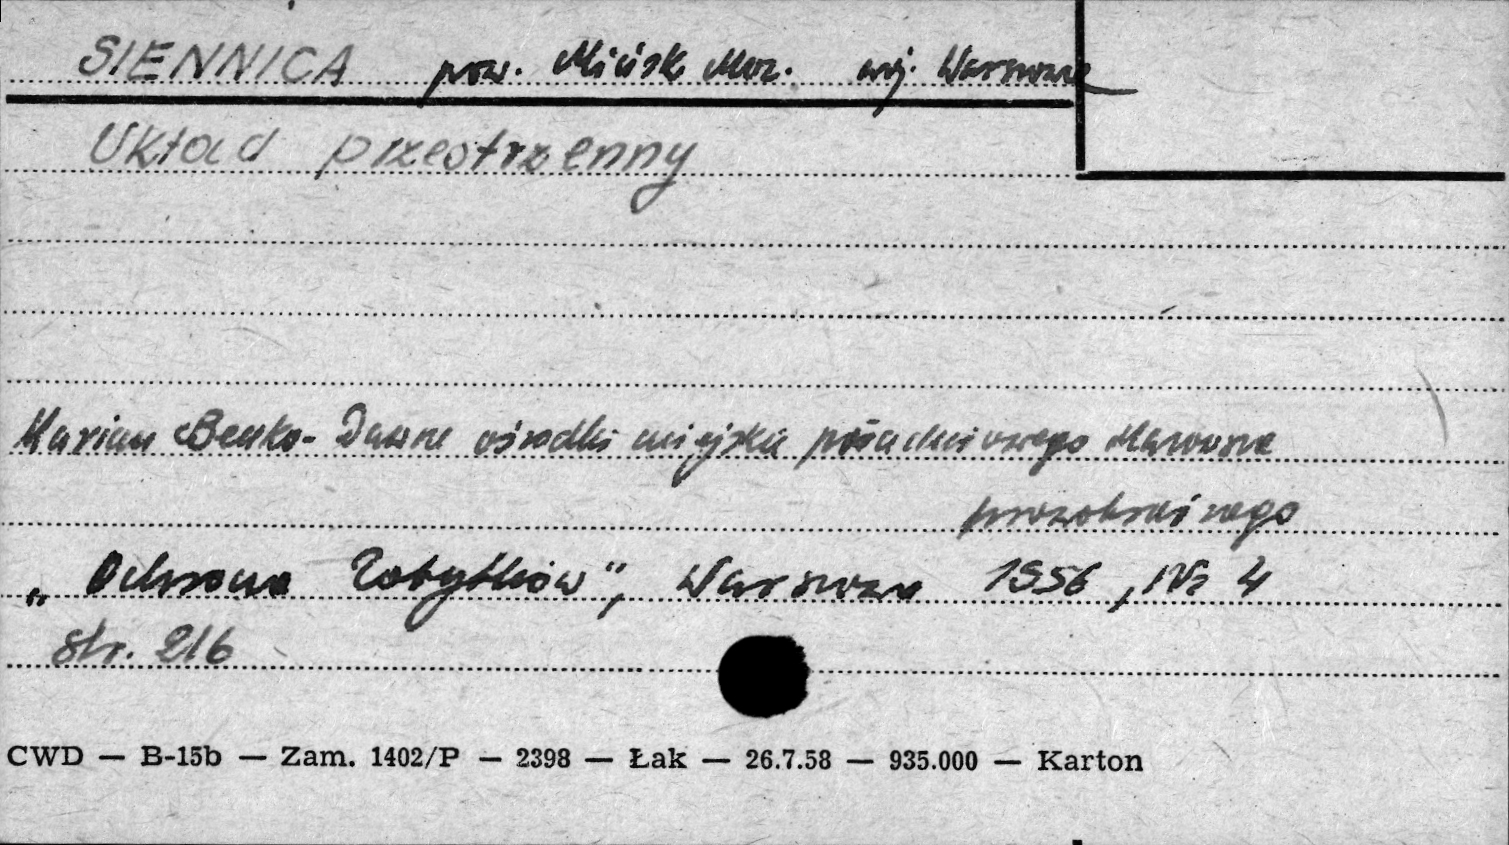 SIENNICA pow. Mińsk Maz. woj. Warszawa
Układ przestrzenny
Marian Benko - Dawne ośrodki miejskie południowego Mazowsza
prawobrzeżnego
„Ochrona Zabytków”, Warszawa 1956, Nr 4
str. 216
CWD — B-15b — Zam. 1402/P — 2398 — Łak — 26.7.58 — 935.000 — Karton